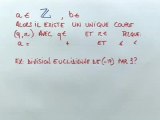 a ∈ ℤ, b ∈
ALORS IL EXISTE UN UNIQUE COUPLE
(q, r) AVEC q ∈ ET r ∈ TELQUE :
a = +
EX: DIVISION EUCLIDIENNE DE (-17) PAR 3 ?